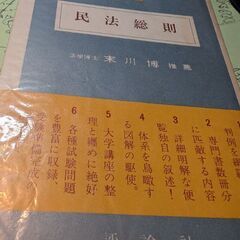 民法総則
法学博士 末川博 推薦
1 判例を網
2 専門書数冊分
に匹敵する内容
3 詳細明解な便
覧独自の叙述！
4 体系を鳥瞰す
る図解の駆使。
5 大学講座の整
理と纏めに絶好
6 各種試験問題
を豊富に収録、
受験準備完成の